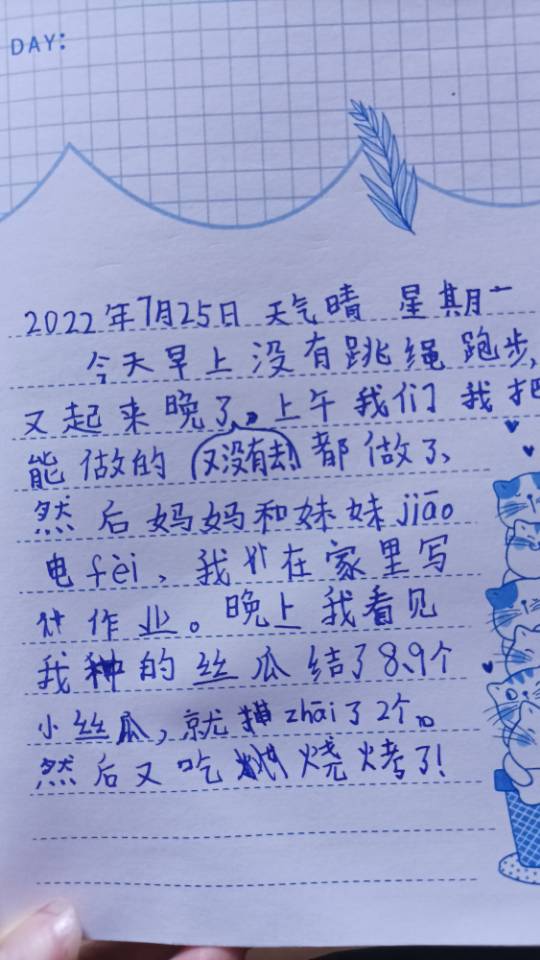 DAY:
2022年7月25日 天气晴 星期一
今天早上没有跳绳跑步,
又起来晚了。上午我们我把
能做的(又没有去)都做了、
然后妈妈和妹妹jiāo
电fèi、我在家里写
作业。晚上我看见
我种的丝瓜结了8、9个
小丝瓜,就zhāi了2个。
然后又吃烧烤了!